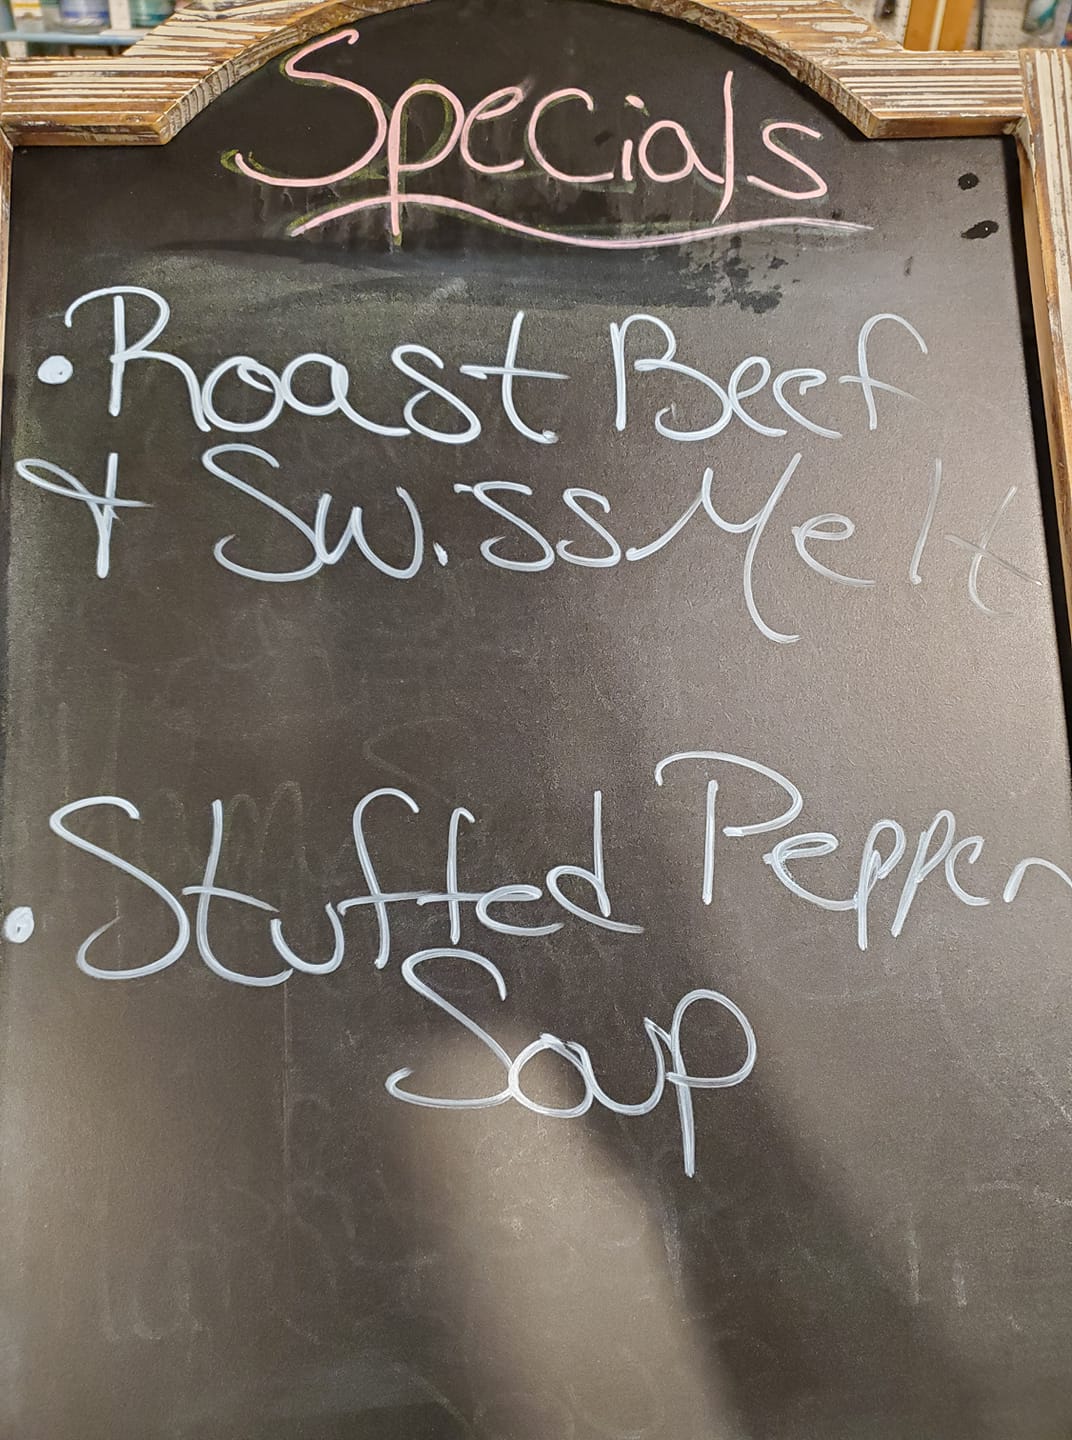 Specials
• Roast Beef
& Swiss Melt
• Stuffed Pepper
Soup